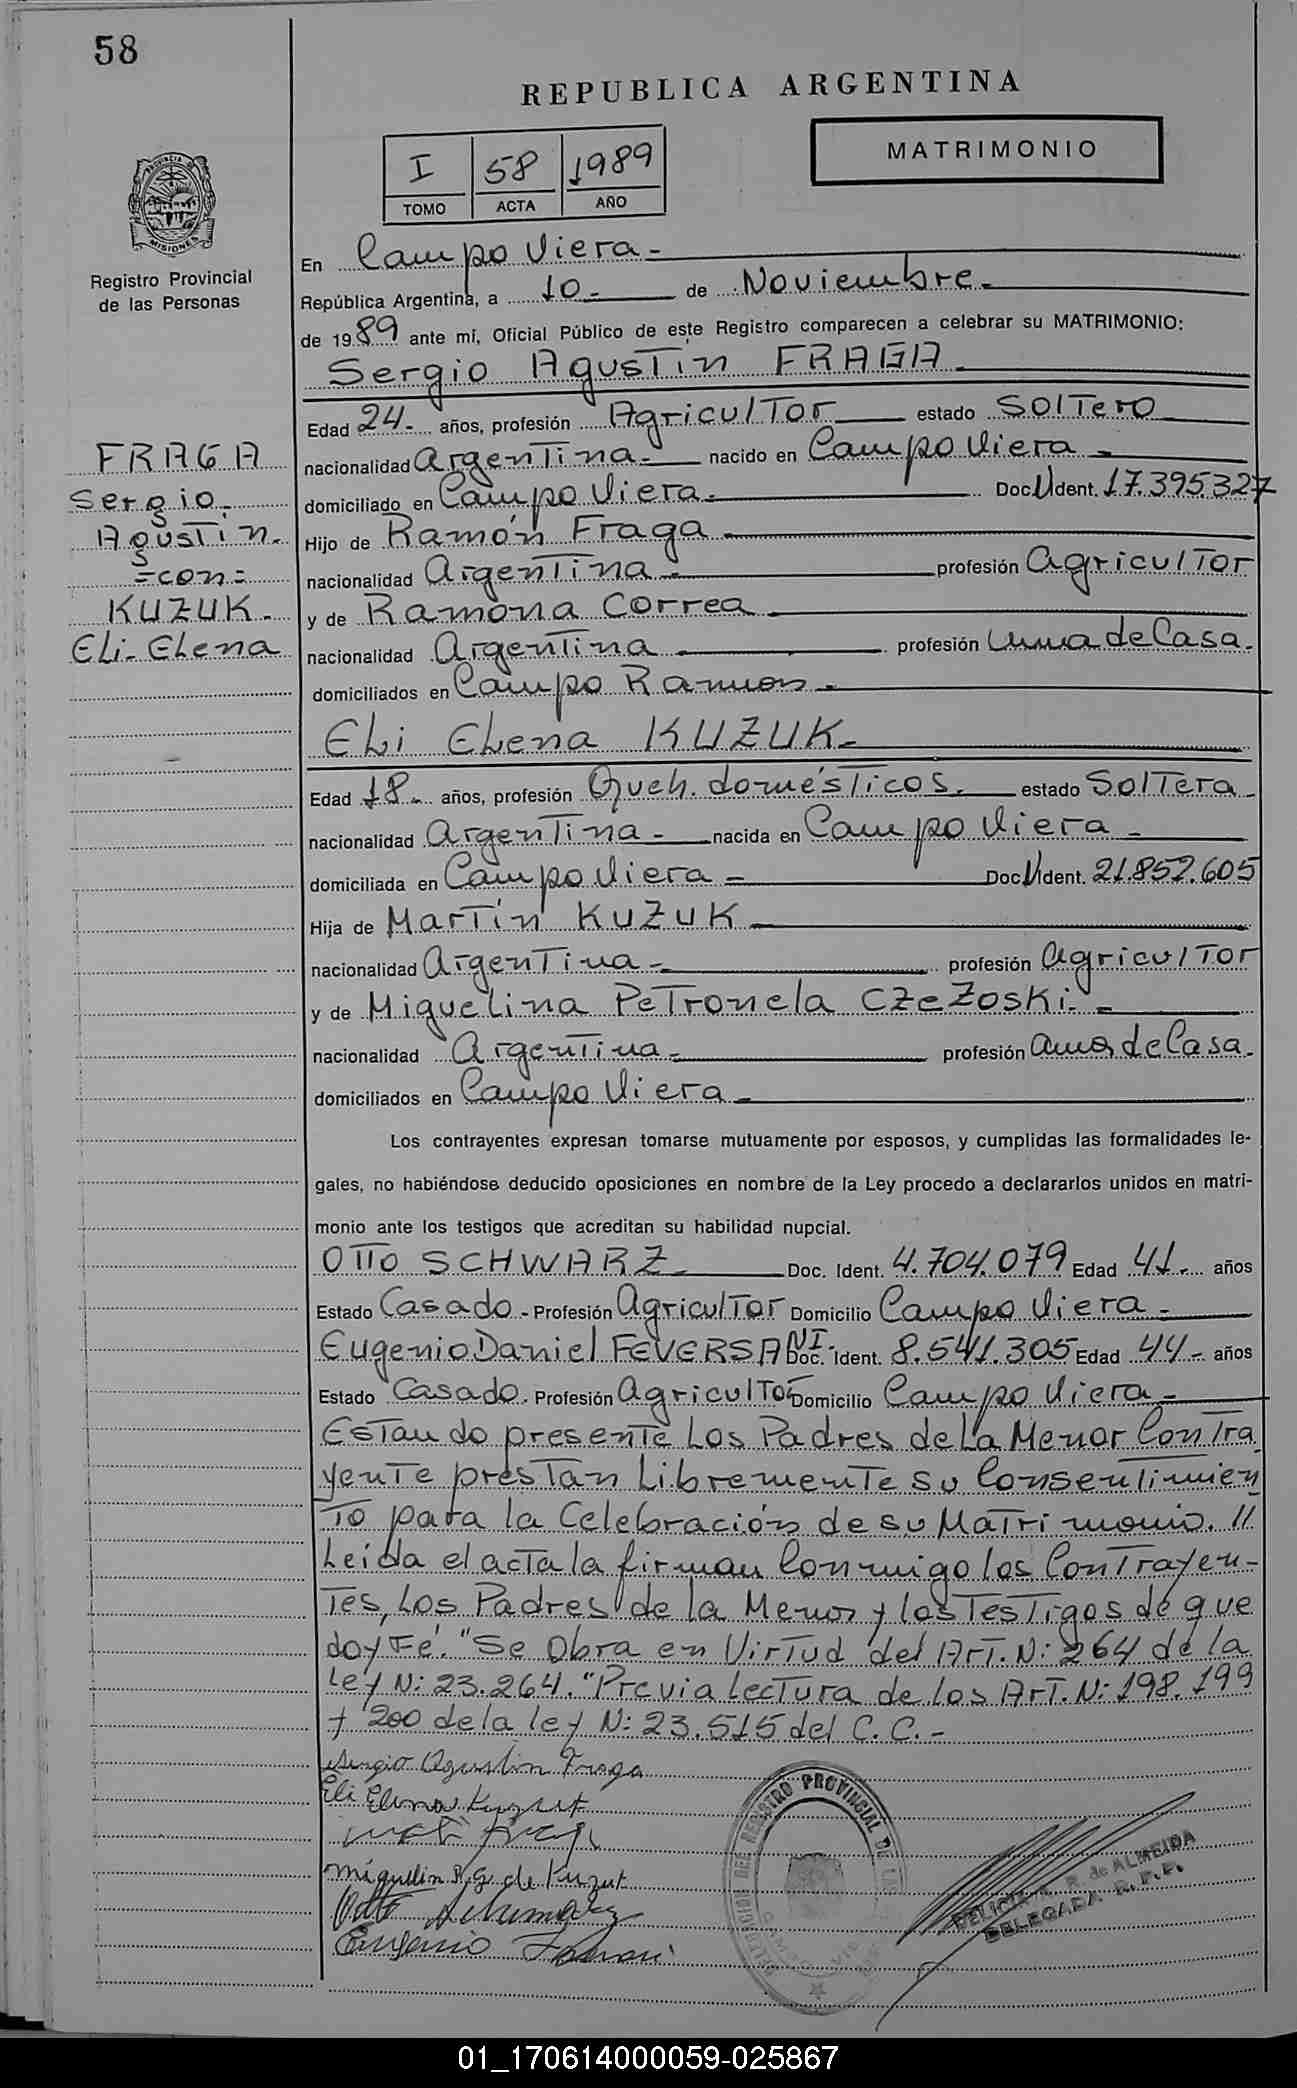 58
REPUBLICA ARGENTINA
I 58 1989
TOMO ACTA AÑO
MATRIMONIO
PROVINCIA DE
MISIONES
Registro Provincial
de las Personas
En Campo Viera -
República Argentina, a 10 - de Noviembre -
de 1989 ante mí, Oficial Público de este Registro comparecen a celebrar su MATRIMONIO:
Sergio Agustin FRAGA -
Edad 24 - años, profesión Agricultor estado Soltero
FRAGA
Sergio
Agustin.
=con=
KUZUK.
Eli Elena
nacionalidad Argentina - nacido en Campo Viera -
domiciliado en Campo Viera - Doc. Ident. 17.395.327
Hijo de Ramón Fraga
nacionalidad Argentina - profesión Agricultor
y de Ramona Correa -
nacionalidad Argentina - profesión Ama de Casa.
domiciliados en Campo Ramon -
Eli Elena KUZUK -
Edad 18 - años, profesión Queh. domésticos. estado Soltera
nacionalidad Argentina - nacida en Campo Viera -
domiciliada en Campo Viera - Doc. Ident. 21.852.605
Hija de Martín KUZUK
nacionalidad Argentina - profesión Agricultor
y de Miguelina Petronela Czezoski. -
nacionalidad Argentina - profesión Ama de Casa.
domiciliados en Campo Viera -
Los contrayentes expresan tomarse mutuamente por esposos, y cumplidas las formalidades le-
gales, no habiéndose deducido oposiciones en nombre de la Ley procedo a declararlos unidos en matri-
monio ante los testigos que acreditan su habilidad nupcial.
OTTO SCHWARZ - Doc. Ident. 4.704.079 Edad 41 - años
Estado Casado - Profesión Agricultor Domicilio Campo Viera -
Eugenio Daniel FEVERSANI - Doc. Ident. 8.541.305 Edad 44 - años
Estado Casado. Profesión Agricultor Domicilio Campo Viera -
Estando presente Los Padres de La Menor Contra
yente prestan Libremente su Consentimien
to para la Celebración de su Matrimonio. //
Leída el acta la firman Conmigo los Contrayen-
tes, Los Padres de la Menor y los Testigos de que
doy Fé. "Se Obra en Virtud del Art. N: 264 de la
Ley N: 23.264. "Previa lectura de los Art. N: 198. 199
y 200 de la ley N: 23.515 del C. C. -
Sergio Agustin Fraga
Eli Elena Kuzuk
de Kuzuk
Otto Schwarz
Eugenio
REGISTRO PROVINCIAL DE LAS
R. de ALMEIDA
DELEGADA R. P. P.
01_170614000059-025867